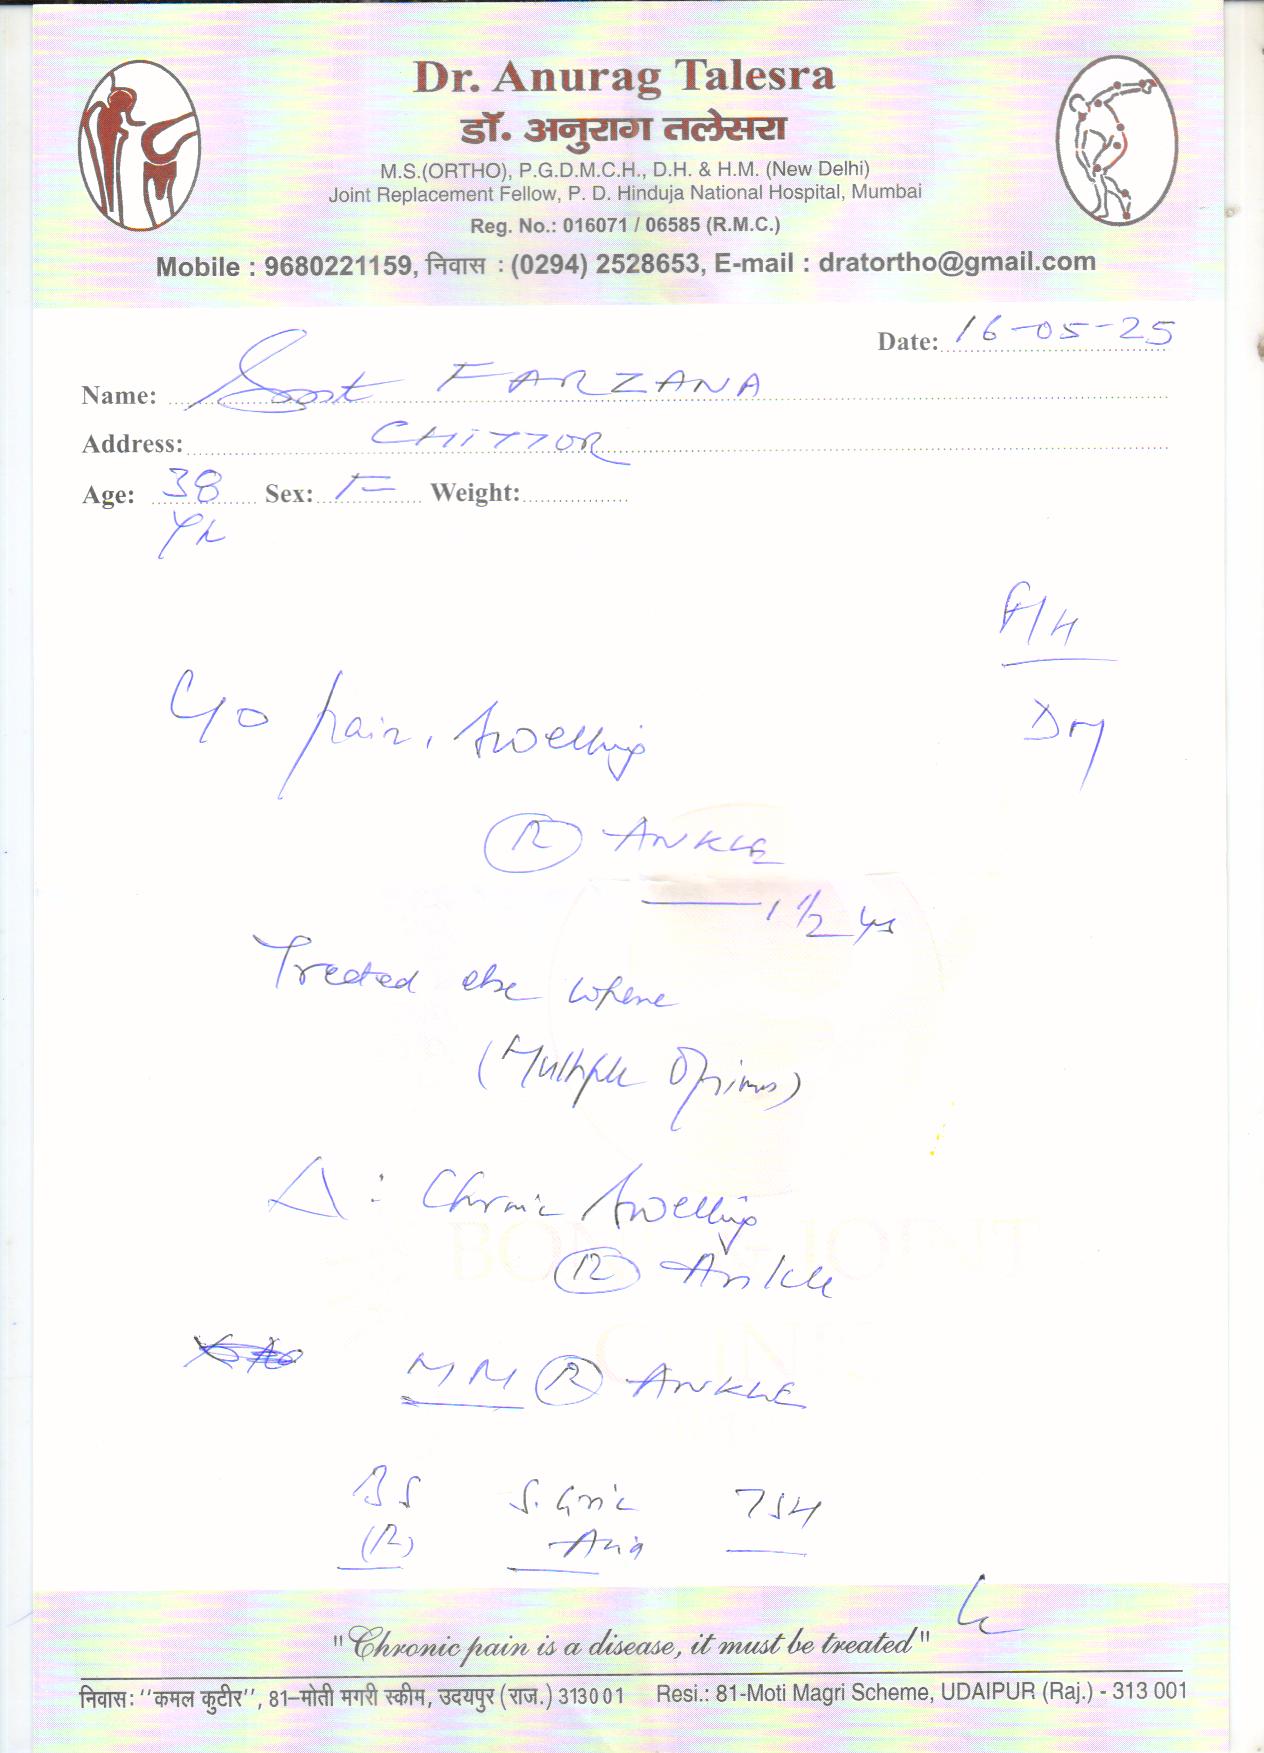 Dr. Anurag Talesra
डॉ. अनुराग तलेसरा
M.S.(ORTHO), P.G.D.M.C.H., D.H. & H.M. (New Delhi)
Joint Replacement Fellow, P. D. Hinduja National Hospital, Mumbai
Reg. No.: 016071 / 06585 (R.M.C.)
Mobile : 9680221159, निवास : (0294) 2528653, E-mail : dratortho@gmail.com
Date: 16-05-25
Name: FARZANA
Address: CHITTOR
Age: 38 Sex: F Weight:
Yr
H/H
Dry
C/o pain, swelling
(R) ANKLE
1 1/2 yrs
Treated else where
(Multiple Opinions)
Δ: Chronic swelling
(R) Ankle
MM (R) ANKLE
BS S. Uric TSH
(R) Acid
BONE & JOINT
CLINIC
"Chronic pain is a disease, it must be treated"
निवास: ''कमल कुटीर'', 81–मोती मगरी स्कीम, उदयपुर (राज.) 313001 Resi.: 81-Moti Magri Scheme, UDAIPUR (Raj.) - 313 001